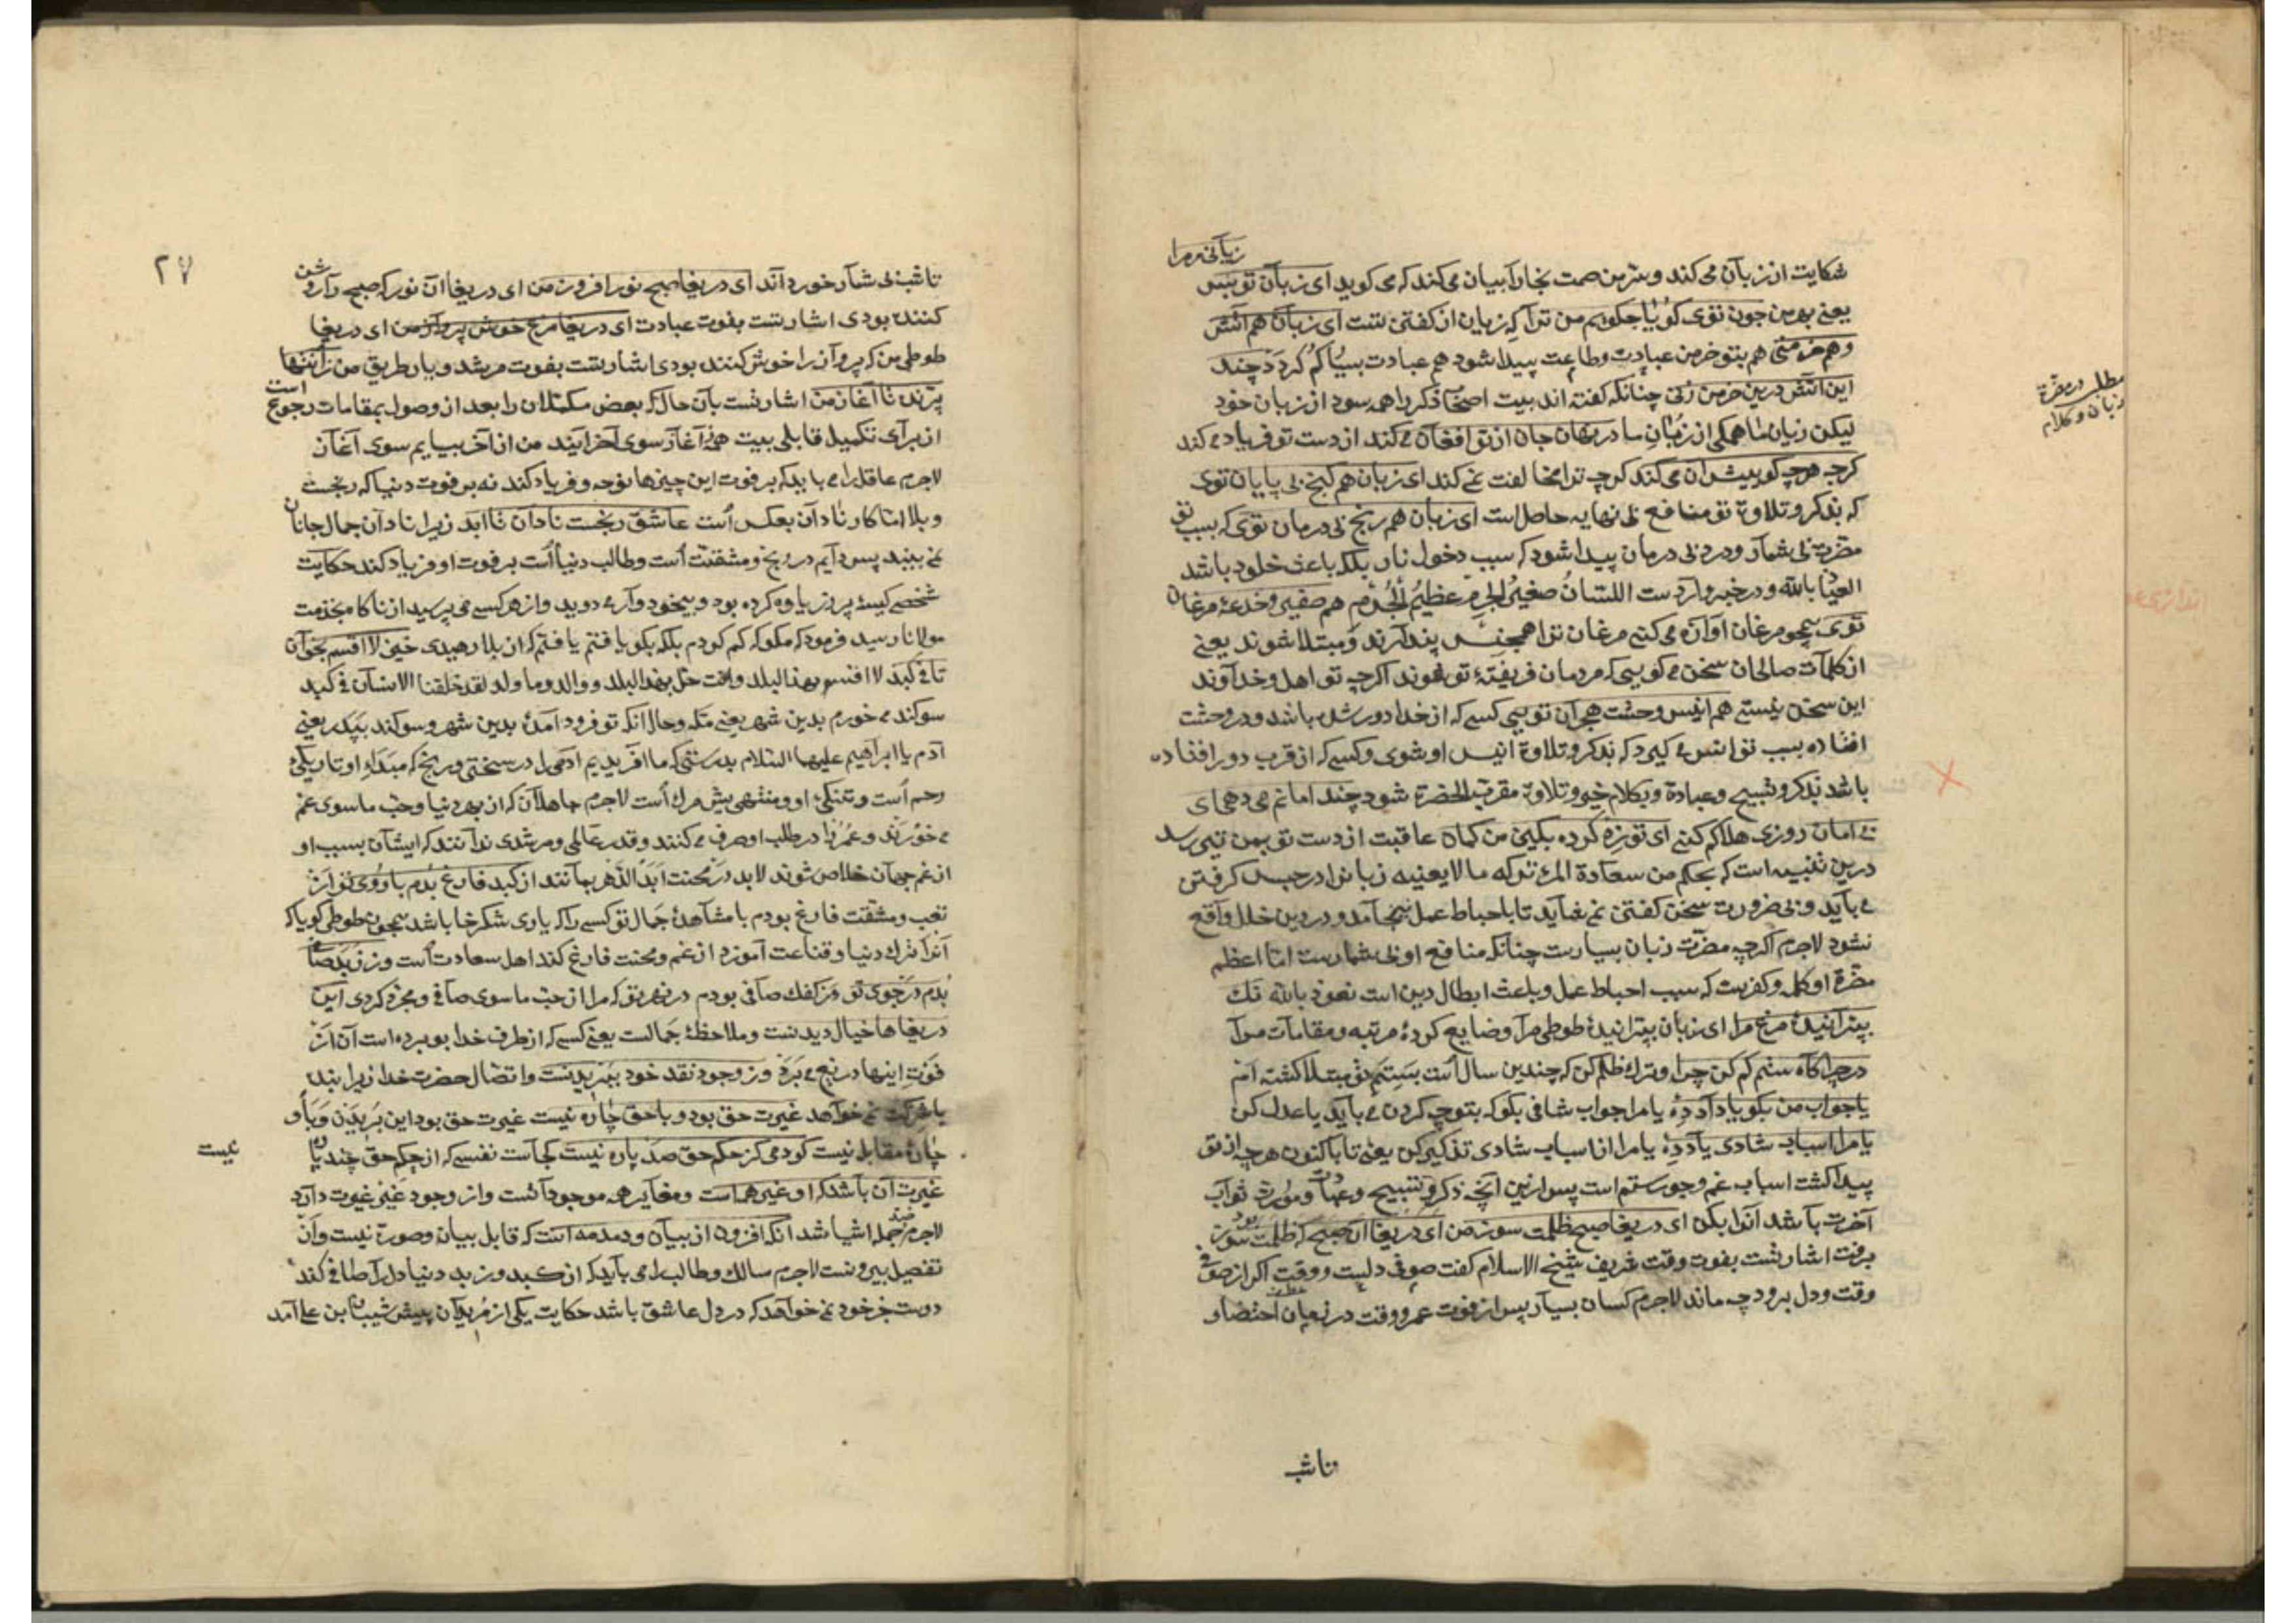 زیانی مرا
شکایت از زبان می کند و سر من صمت نجا را بیان می کند که می کوید ای زبان تو بس
یعنی بهر من چون توی کویا چکویم من ترا که زیان از کفتن تست ای زبان هم آتش
وهم خرمنی هم بتو خرمن عبادت وطاعت پیدا شود هم عبادت بسیا کم کردد چند
این آتش درین خرمن زنی چنانکه کفته اند بیت ذکر را همه سود از زبان خود
لیکن زیان ما همکی از زبان ما در نهان جان از تو افغان می کند از دست تو فریاد می کند
کرچه هرچه کوییش آن می کند کرچه ترا مخالفت نمی کند ای زبان هم کنج بی پایان توی
که بذکر و تلاوة تو منافع بی نهایه حاصل است ای زبان هم رنج بی درمان توی که بسبب تو
مضرت بی شمار و درد بی درمان پیدا شود که سبب دخول نار بلکه باعث خلود باشد
العیاذ بالله و در خبر وارد ست اللسان صغیر الجرم عظیم الجرم هم صفیر وخدعهٔ مرغان
توی همچو مرغان آوازه می کنی مرغان ترا همجنس پندارند و مبتلا شوند یعنی
از کلمات صالحان سخن می کویی که مردمان فریفتهٔ تو شوند اکرچه تو اهل و خداوند
این سخن نیستی هم انیس وحشت هجران تویی کسی که از خدا دور شده باشد و در وحشت
افتاده بسبب تو انس می کیرد که بذکر و تلاوة انیس او شوی وکسی که از قرب دور افتاده
باشد بذکر و تسبیح و عبادة و بکلام خیر و تلاوة مقرب الحضرة شود چند امانم می دهی ای
بی امان روزی هلاکم کنی ای تو زه کرده بکین من کمان عاقبت از دست تو بمن تیر رسد
درین تنبیه است که بحکم من سعادة المرء ترکه ما لا یعنیه زبانرا در حبس کرفتن
می باید و بی ضرورت سخن کفتن نمی شاید تا با احباط عمل نینجامد و در دین خلل واقع
نشود لاجرم اکرچه مضرت زبان بسیارست چنانکه منافع او بی شمارست اما اعظم
مضرة او کلمه و کفرست که سبب احباط عمل و باعث ابطال دین است نعوذ بالله تک
بپرانیدهٔ مرغ مرا ای زبان بپرانیدهٔ طوطی مرا و ضایع کردهٔ مرتبه و مقامات مرا
در چراکاه ستم کم کن چرا و ترک ظلم کن که چندین سال است بستم تو مبتلا کشته ام
یا جواب من بکو یا داد ده یا مرا جواب شافی بکو که بتو چه کردن می باید یا عدل کن
یا مرا اسباب شادی یاد ده یا مرا از اسباب شادی تذکیر کن یعنی تا باکنون هرچه از تو
پیدا کشت اسباب غم و جور و ستم است پس ازین آنچه ذکر و تسبیح و عبادات و مورث ثواب
آخرت باشد آنرا بکن ای دریغا صبح ظلمت سوز من ای دریغا آن صبح که ظلمت سوز بود
برفت اشارتست بفوت وقت شریف شیخ الاسلام کفت صوفی دلیست و وقت اکر از صوفی
وقت و دل برود چه ماند لاجرم کسان بسیار پس از فوت عمر و وقت در زمان احتضار
تاشب
مطلب در مضرة
زبان و کلام
۲۷
تاشب بی شمار خورده اند ای دریغا صبح نور افروز من ای دریغا آن نور که صبح را روشن
کننده بودی اشارتست بفوت عبادت ای دریغا مرغ خوش پرواز من ای دریغا
طوطی من که پرواز را خوش کننده بودی اشارتست بفوت مرشد و یار طریق من ز انتها
پرنده تا آغاز من اشارتست بآن حال که بعض مکملان را بعد از وصول بمقامات رجوع است
از برای تکمیل قابلی بیت همه ز آغاز سوی آخر آیند من از آخر بیایم سوی آغاز
لاجرم عاقل را می باید که بر فوت این چیزها نوحه و فریاد کند نه بر فوت دنیا که رنجست
و بلا اما کار نادان بعکس است عاشق رنجست نادان تا ابد زیرا نادان جمال جانان
نمی بیند پس دایم در رنج و مشقت است و طالب دنیا است بر فوت او فریاد کند حکایت
شخصی کیسهٔ پر زر یاوه کرده بود و بیخود وار می دوید و از هر کسی می پرسید از ناکاه بخدمت
مولانا رسید فرمود که مکو که کم کردم بلکه بکو یافتم یافتم که از بلا رهیدی خیز لا اقسم بخوان
تا فی کبد لا اقسم بهذا البلد وانت حل بهذا البلد و والد وما ولد لقد خلقنا الانسان فی کبد
سوکند می خورم بدین شهر یعنی مکه و حال آنکه تو فرود آمدهٔ بدین شهر و سوکند بپدر یعنی
آدم یا ابراهیم علیهما السلام بدرستی که ما آفریدیم آدمی را در سختی و رنج که مبداء او تاریکی
رحم است و تنکی او و منتهی یش مرک است لاجرم جاهلان که از بهر دنیا و حب ماسوی غم
می خورند و عمر را در طلب او صرف می کنند و قدر عالمی و مرشدی ندانند که ایشان بسبب او
از غم جهان خلاص شوند لابد در محنت ابد الدهر بمانند از کبد فارغ بدم با روی تو از
تعب و مشقت فارغ بودم با مشاهدهٔ جمال تو کسی را که یاری شکرخا باشد همچون طوطی کویا که
آنرا ترک دنیا و قناعت آموزد از غم و محنت فارغ کند اهل سعادت است وز زبد صافی
بدم در جوی تو و ز کفک صافی بودم در نهر تو که مرا از حب ماسوی صافی و مجرد کردی این
دریغاها خیال دیدنست و ملاحظهٔ جمالست یعنی کسی که از طرف خدا بو برده است آن از
فوت اینها دریغ می برد وز وجود نقد خود ببریدنست و اتصال حضرت خدا زیرا بنده
با شرکت نمی خواهد غیرت حق بود و با حق چاره نیست غیرت حق بود این بریدن و با او
چارهٔ مقابله نیست کو دمی کز حکم حق صد پاره نیست کجاست نفسی که از حکم حق چند پاره
نیست
غیرت آن باشد که او غیر همه است و مغایر هر موجود آنست و از وجود غیر غیرت دارد
لاجرم ضد جمله اشیا شد آنکه افزون از بیان و دمدمه است که قابل بیان و صورة نیست و آن
تفصیل بیرونست لاجرم سالک و طالب را می باید که از کبد و زبد دنیا دل را صافی کند
دوست جز خود نمی خواهد که در دل عاشق باشد حکایت یکی از مریدان پیش شیبان بن علی آمد